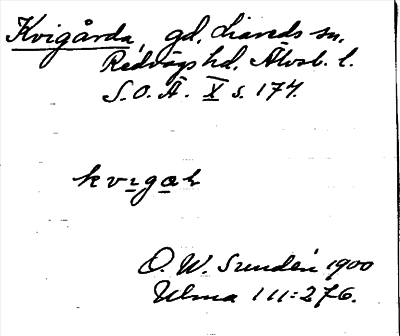 Kvigårda, gd, Liareds sn.
Redvägs hd. Älvsb. l.
S.O.Ä. X s. 174.
kvıgaḥ
O. W. Sundén 1900
Ulma 111:276.